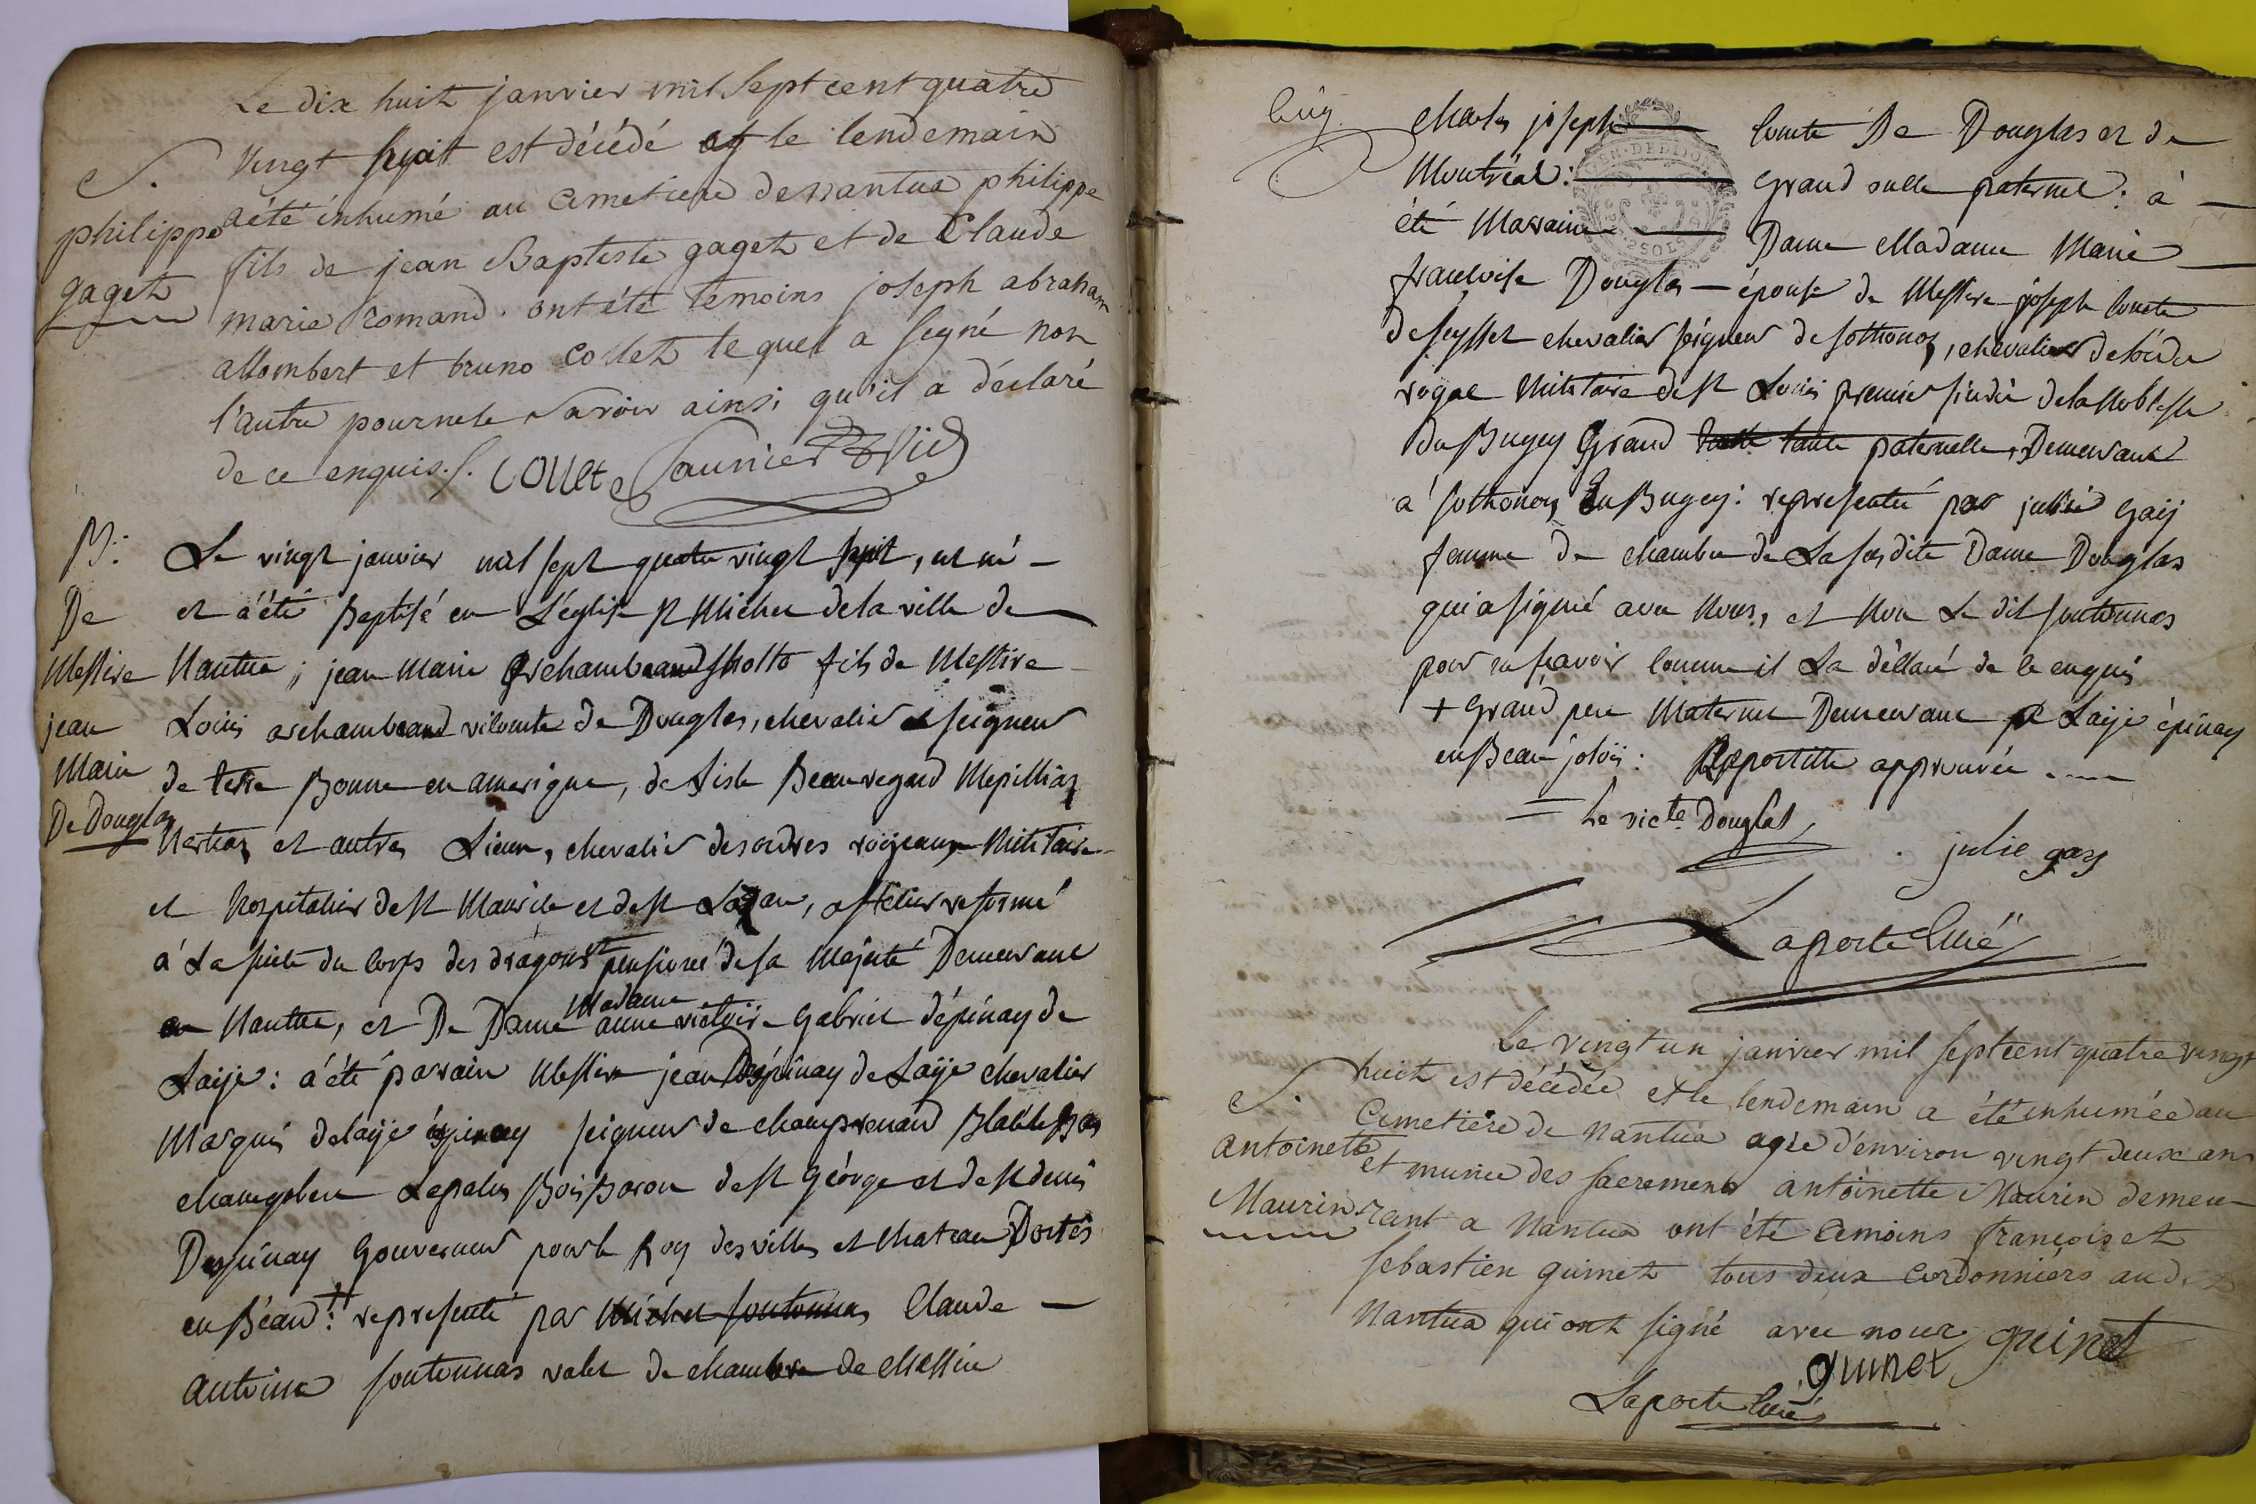 Le dix huit janvier mil sept cent quatre
vingt huit est décédé et le lendemain
a été inhumé au cimetiere de nantua philippe
fils de jean Baptiste gaget et de Claude
marie romand. ont été temoins joseph abraham
allombert et bruno collet lequel a signé non
l'autre pour ne le savoir ainsi qu'il a déclaré
de ce enquis. /. COLLet Saunier Vic
S.
philippe
gaget
B:
De
Messire
jean
Marie
De Douglas
Le vingt janvier mil sept quatre vingt huit, est né –
et a été Baptisé en L'église St Michel de la ville de —
Nantua ; jean Marie Archambaud Sholto fils de Messire
Louis archambaud vicomte de Douglas, chevalier et seigneur
de terre Bonne en amerique, de Lisle Beauregard Mepilliat
Nertias et autres Lieux, chevalier des ordres royeaux Militaire
et hospitalier de St Maurice et de St Lazare, officier reformé
à La suite du corps des dragons et pensioné de sa Majesté Demeurant
en Nantua, et De Dame Madame anne victoire Gabriel d'épinay de
Laije : a été parain Messire jean D'épinay de Laije chevalier
Marquis de laije épinay seigneur de champrenard Blacé
Lepalus Bois Baron de St George et de St denis
Depinay Gouverneur pour le Roy des villes et Chateau
en Beau + : representé par Michel fontonnas Claude —
antoine fontonnas valet de chambre de Messire
Charles joseph — Comte De Douglas et de
Montréal : — Grand oncle paternel : à —
été Maraine — Dame Madame Marie
francoise Douglas — épouse de Messire joseph Comte
de seyssel chevalier seigneur de sothonoz, chevalier de l'ordre
royal Militaire de St Louis premier sindic de la Noblesse
du Bugey Grand tante paternelle, Demeurant
à sothonoz En Bugey : representée par julie Gay
femme de chambre de La susdite Dame Douglas
qui a signé avec Nous, et Non Le dit fontonnas
pour ne scavoir comme il La déclaré de ce enquis
+ Grand pere Maternel Demeurant à Laije épinay
en Beaujolois : Apostille approuvée . —
Le victe Douglas
julie gay
Laporte Curé
S.
Antoinette
Maurin
Le vingt un janvier mil sept cent quatre vingt
huit est décédée et le lendemain a été inhumée au
Cimetiere de nantua agée d'environ vingt deux ans
et munie des sacremens antoinette Maurin demeu-
rant a Nantua ont été temoins françois et
sebastien guinet tous deux cordonniers aud.
Nantua qui ont signé avec nous guinet
guinet
Laporte Curé